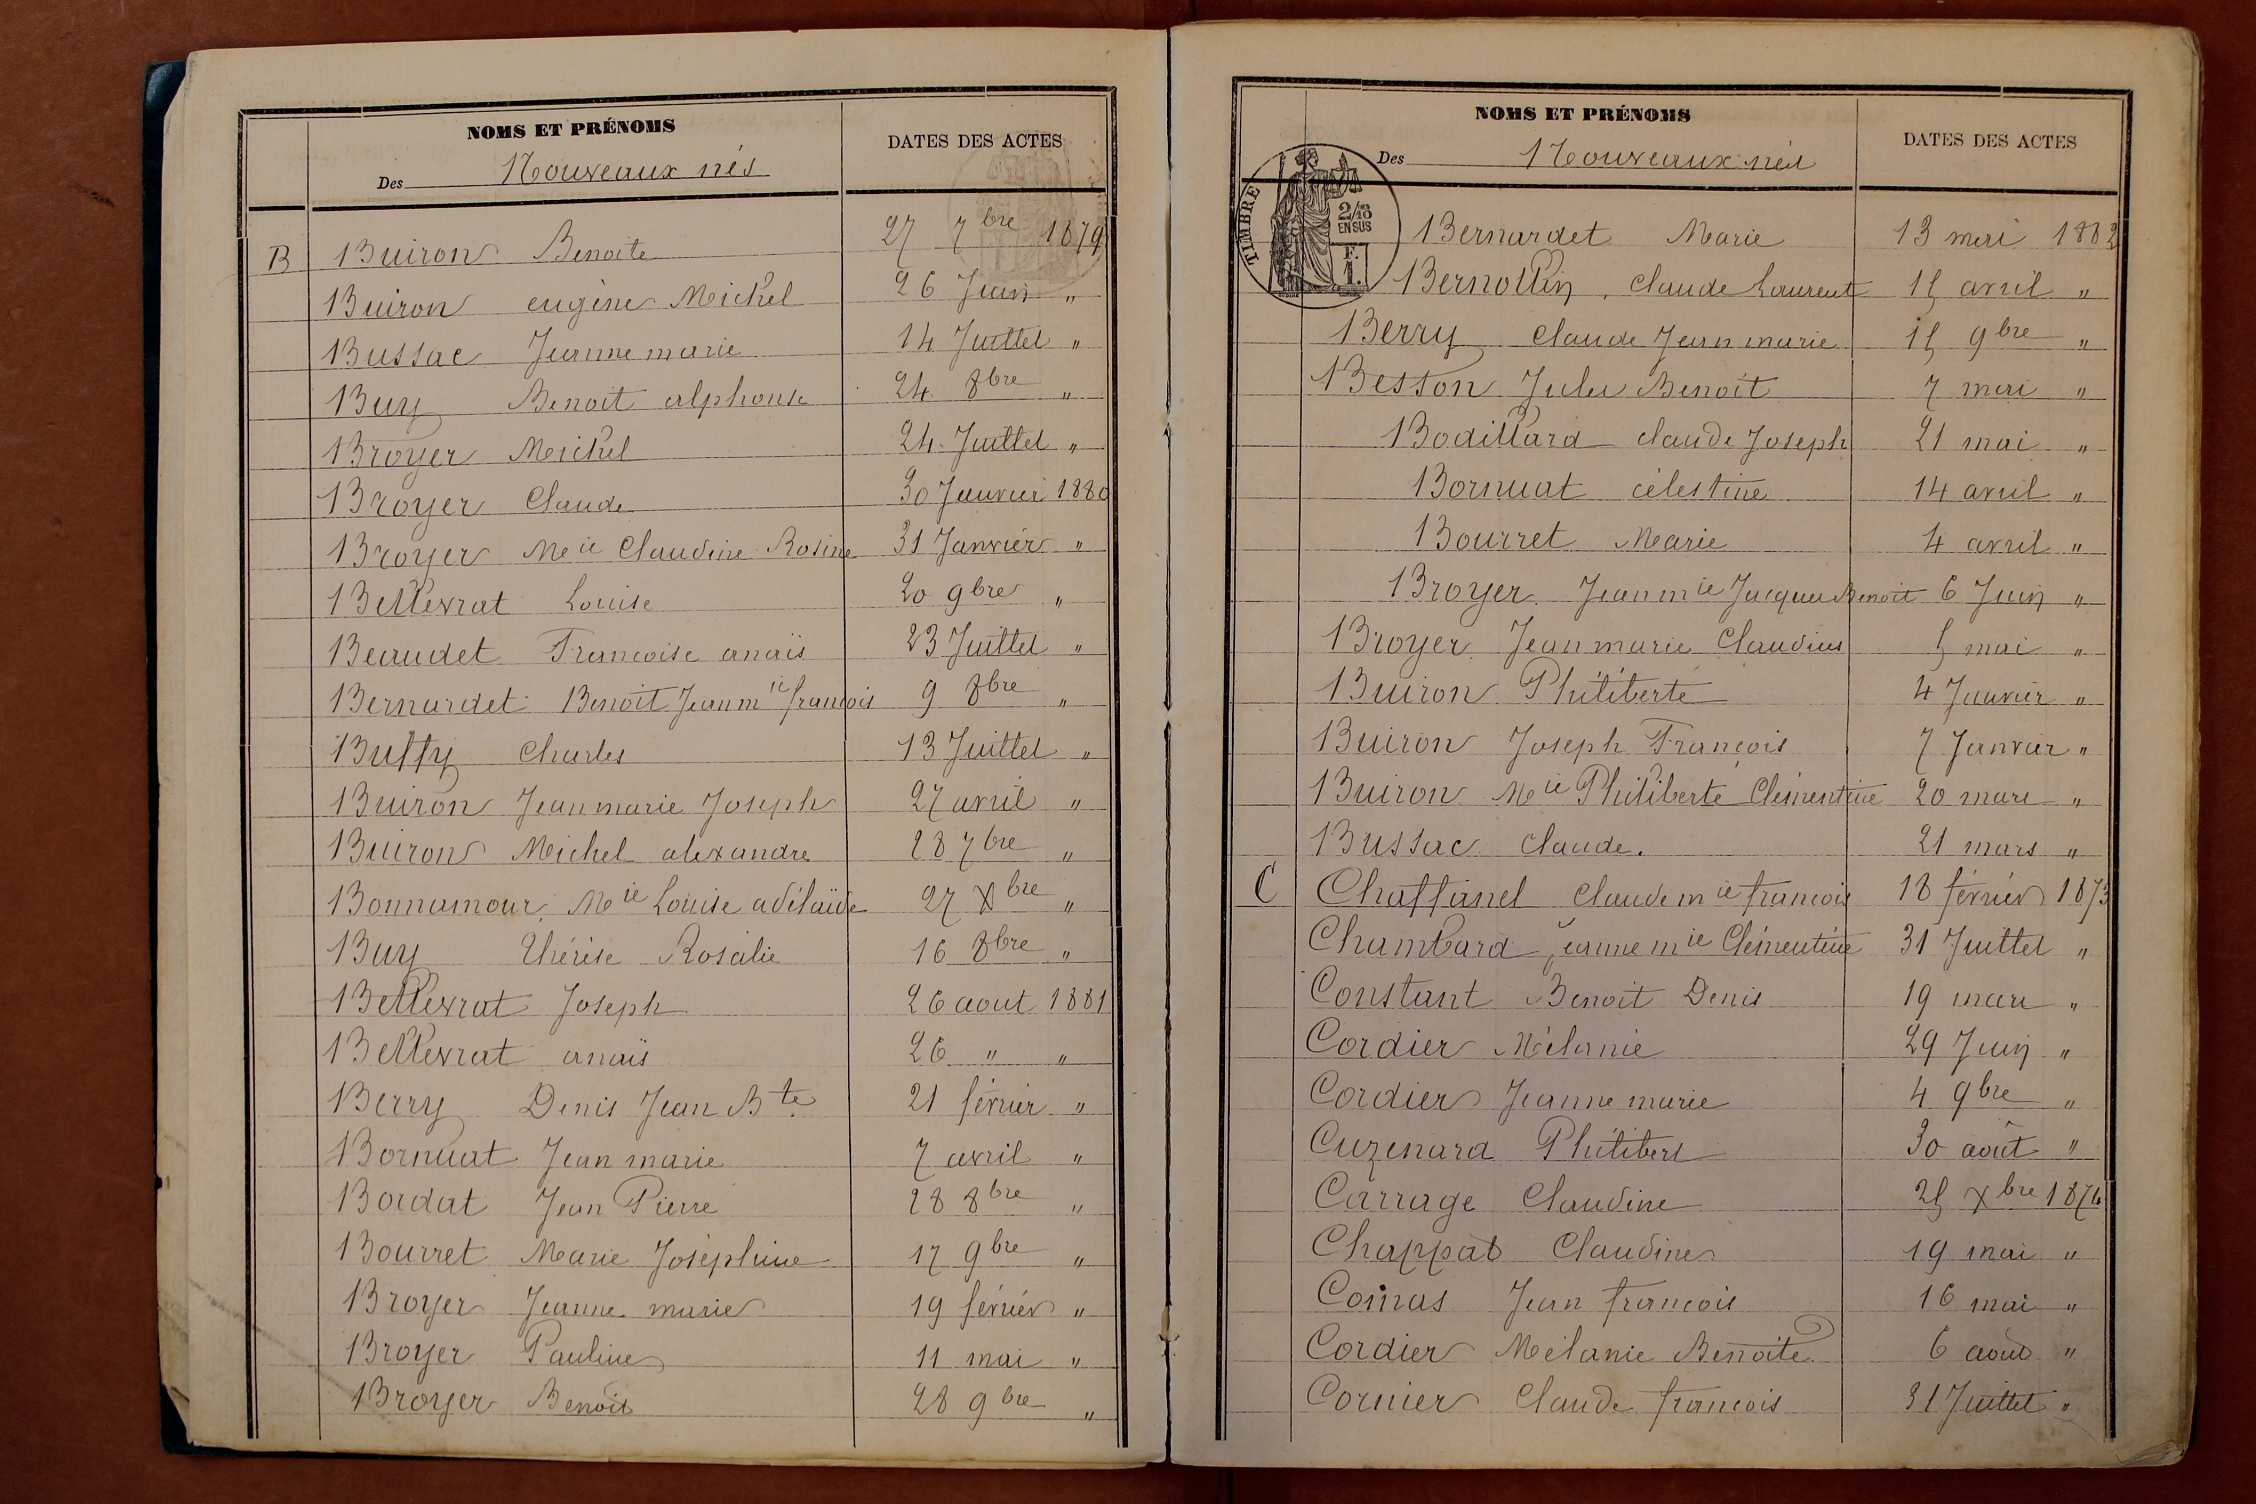 NOMS ET PRÉNOMS
DATES DES ACTES
Des Nouveaux nés
B Buiron Benoite 27 7bre 1879
Buiron eugène Michel 26 Juin "
Bussac Jeanne marie 14 Juillet "
Buy Benoit alphonse 24 8bre "
Broyer Michel 24 Juillet "
Broyer Claude 30 Janvier 1880
Broyer Mie Claudine Rosine 31 Janvier "
Bellevrat Louise 20 9bre "
Beaudet Francoise anaïs 23 Juillet "
Bernardet Benoit Jean mie francois 9 8bre "
Buffy Charles 13 Juillet "
Buiron Jean marie Joseph 27 avril "
Buiron Michel alexandre 28 7bre "
Bonnamour Mie Louise adélaïde 27 Xbre "
Buy Thérèse Rosalie 16 8bre "
Bellevrat Joseph 26 aout 1881
Bellevrat anaïs 26 " "
Berry Denis Jean Bte 21 février "
Bornuat Jean marie 7 avril "
Bordat Jean Pierre 28 8bre "
Bourret Marie Joséphine 17 9bre "
Broyer Jeanne marie 19 février "
Broyer Pauline 11 mai "
Broyer Benoit 28 9bre "
NOMS ET PRÉNOMS
DATES DES ACTES
Des Nouveaux nés
TIMBRE
2/10
EN SUS
F.
1.
Bernardet Marie 13 mai 1882
Bernollin Claude Laurent 15 avril "
Berry Claude Jean marie 15 9bre "
Besson Jules Benoit 7 mai "
Bodillard claude Joseph 21 mai "
Bornuat célestine 14 avril "
Bourret Marie 4 avril "
Broyer Jean mie Jacques Benoit 6 Juin "
Broyer Jean marie Claudius 5 mai "
Buiron Philiberte 4 Janvier "
Buiron Joseph François 7 Janvier "
Buiron Mie Philiberte Clémentine 20 mars "
Bussac claude. 21 mars "
C Chaffanel claude mie francois 18 février 1873
Chambard Jeanne mie Clémentine 31 Juillet "
Constant Benoit Denis 19 mars "
Cordier Mélanie 29 Juin "
Cordier Jeanne marie 4 9bre "
Cuzenard Philibert 30 août "
Carrage Claudine 25 Xbre 1874
Chappat Claudine 19 mai "
Comas Jean francois 16 mai "
Cordier Mélanie Benoite 6 aout "
Cornier Claude francois 31 Juillet "